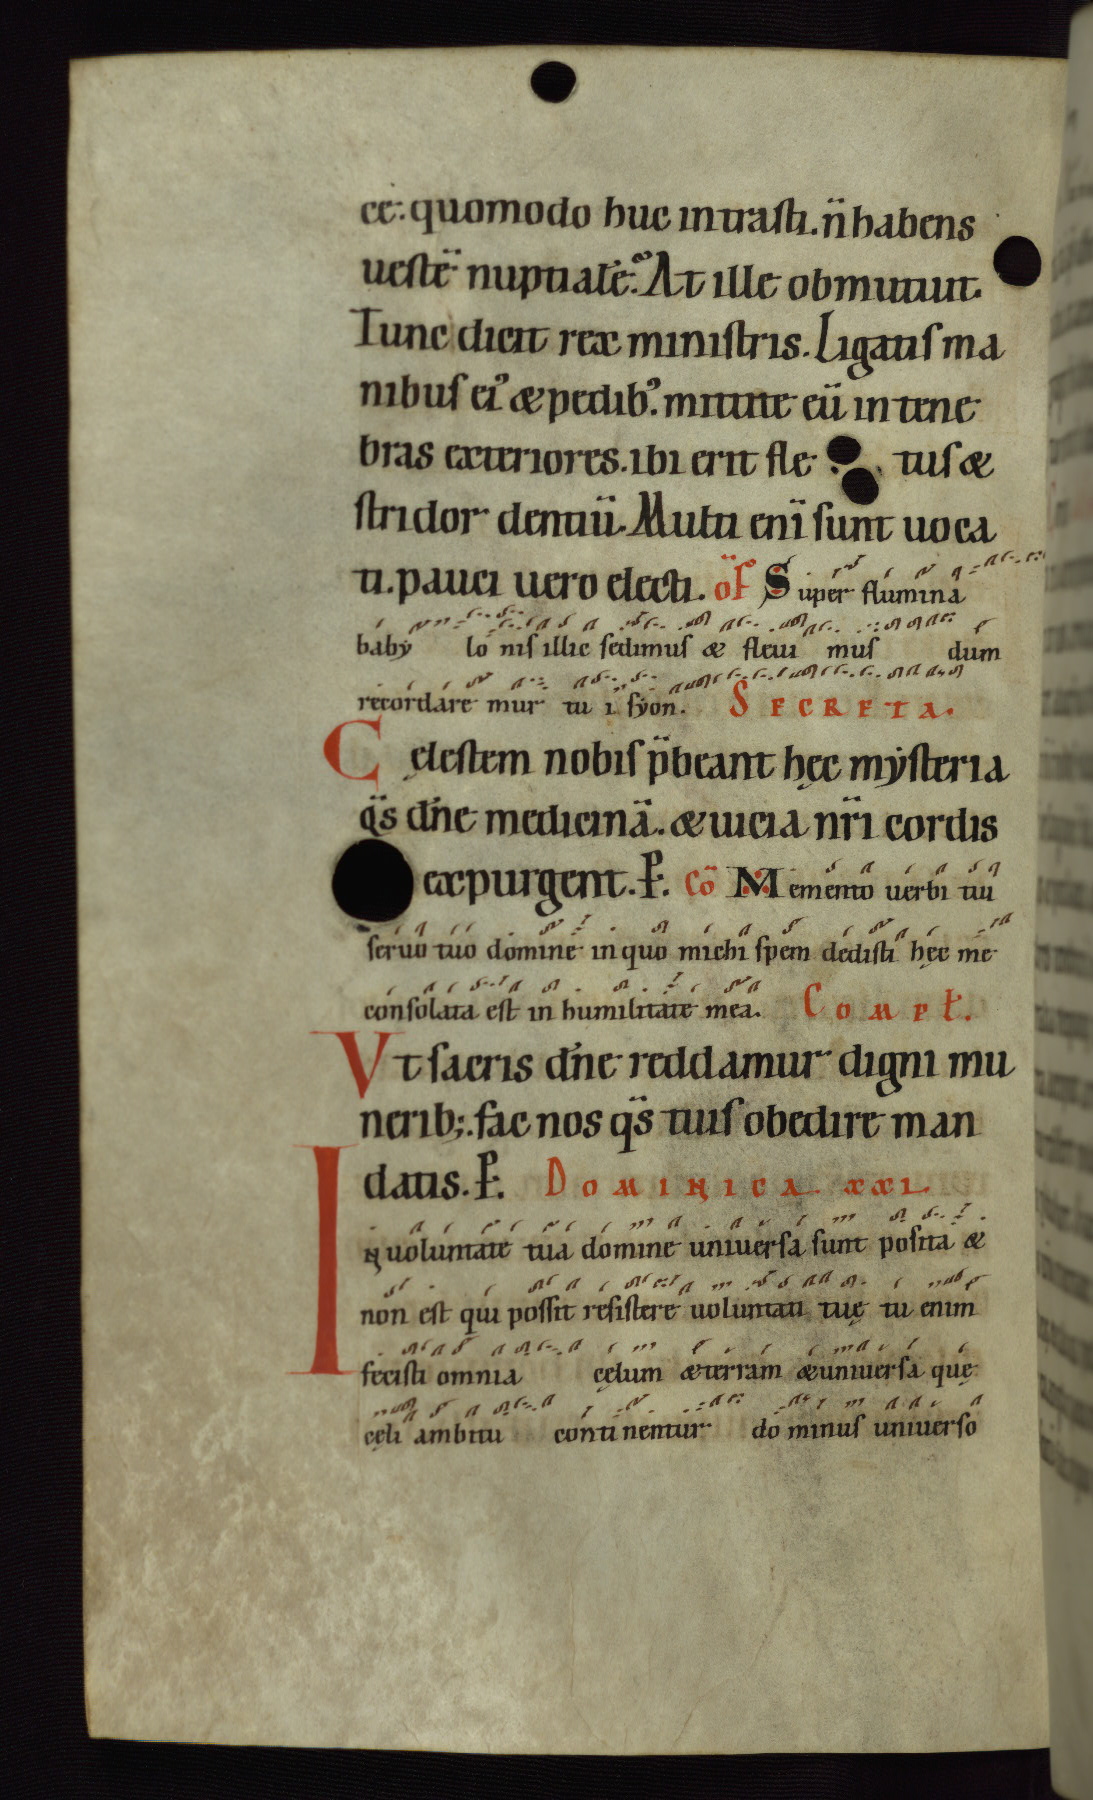 ce: quomodo huc intrasti. n̄ habens
uestē nuptialē? At ille obmutuit.
Tunc dicit rex ministris. Ligatis ma
nibus ei᾽ & pedib᾽. mittite eū in tene
bras exteriores. ibi erit fle tus &
stridor dentiū. Multi enī sunt uoca
ti. pauci uero electi. of̄ Super flumina
baby lo nis illic sedimus & fleui mus dum
recordare mur tu i syon. SECRETA.
Cęlestem nobis p̄beant hęc mẏsteria
q̄s dn̄e medicinā. & uicia nr̄i cordis
expurgent. P̄. Cō Memento uerbi tui
seruo tuo domine in quo michi spem dedisti hęc me
consolata est in humilitate mea. Compł.
Vt sacris dn̄e reddamur digni mu
nerib;. fac nos q̄s tuis obedire man
datis. P̄. DOMINICA XXI.
IN uoluntate tua domine uniuersa sunt posita &
non est qui possit resistere uoluntati tuę tu enim
fecisti omnia cęlum & terram & uniuersa quę
cęli ambitu continentur dominus uniuerso